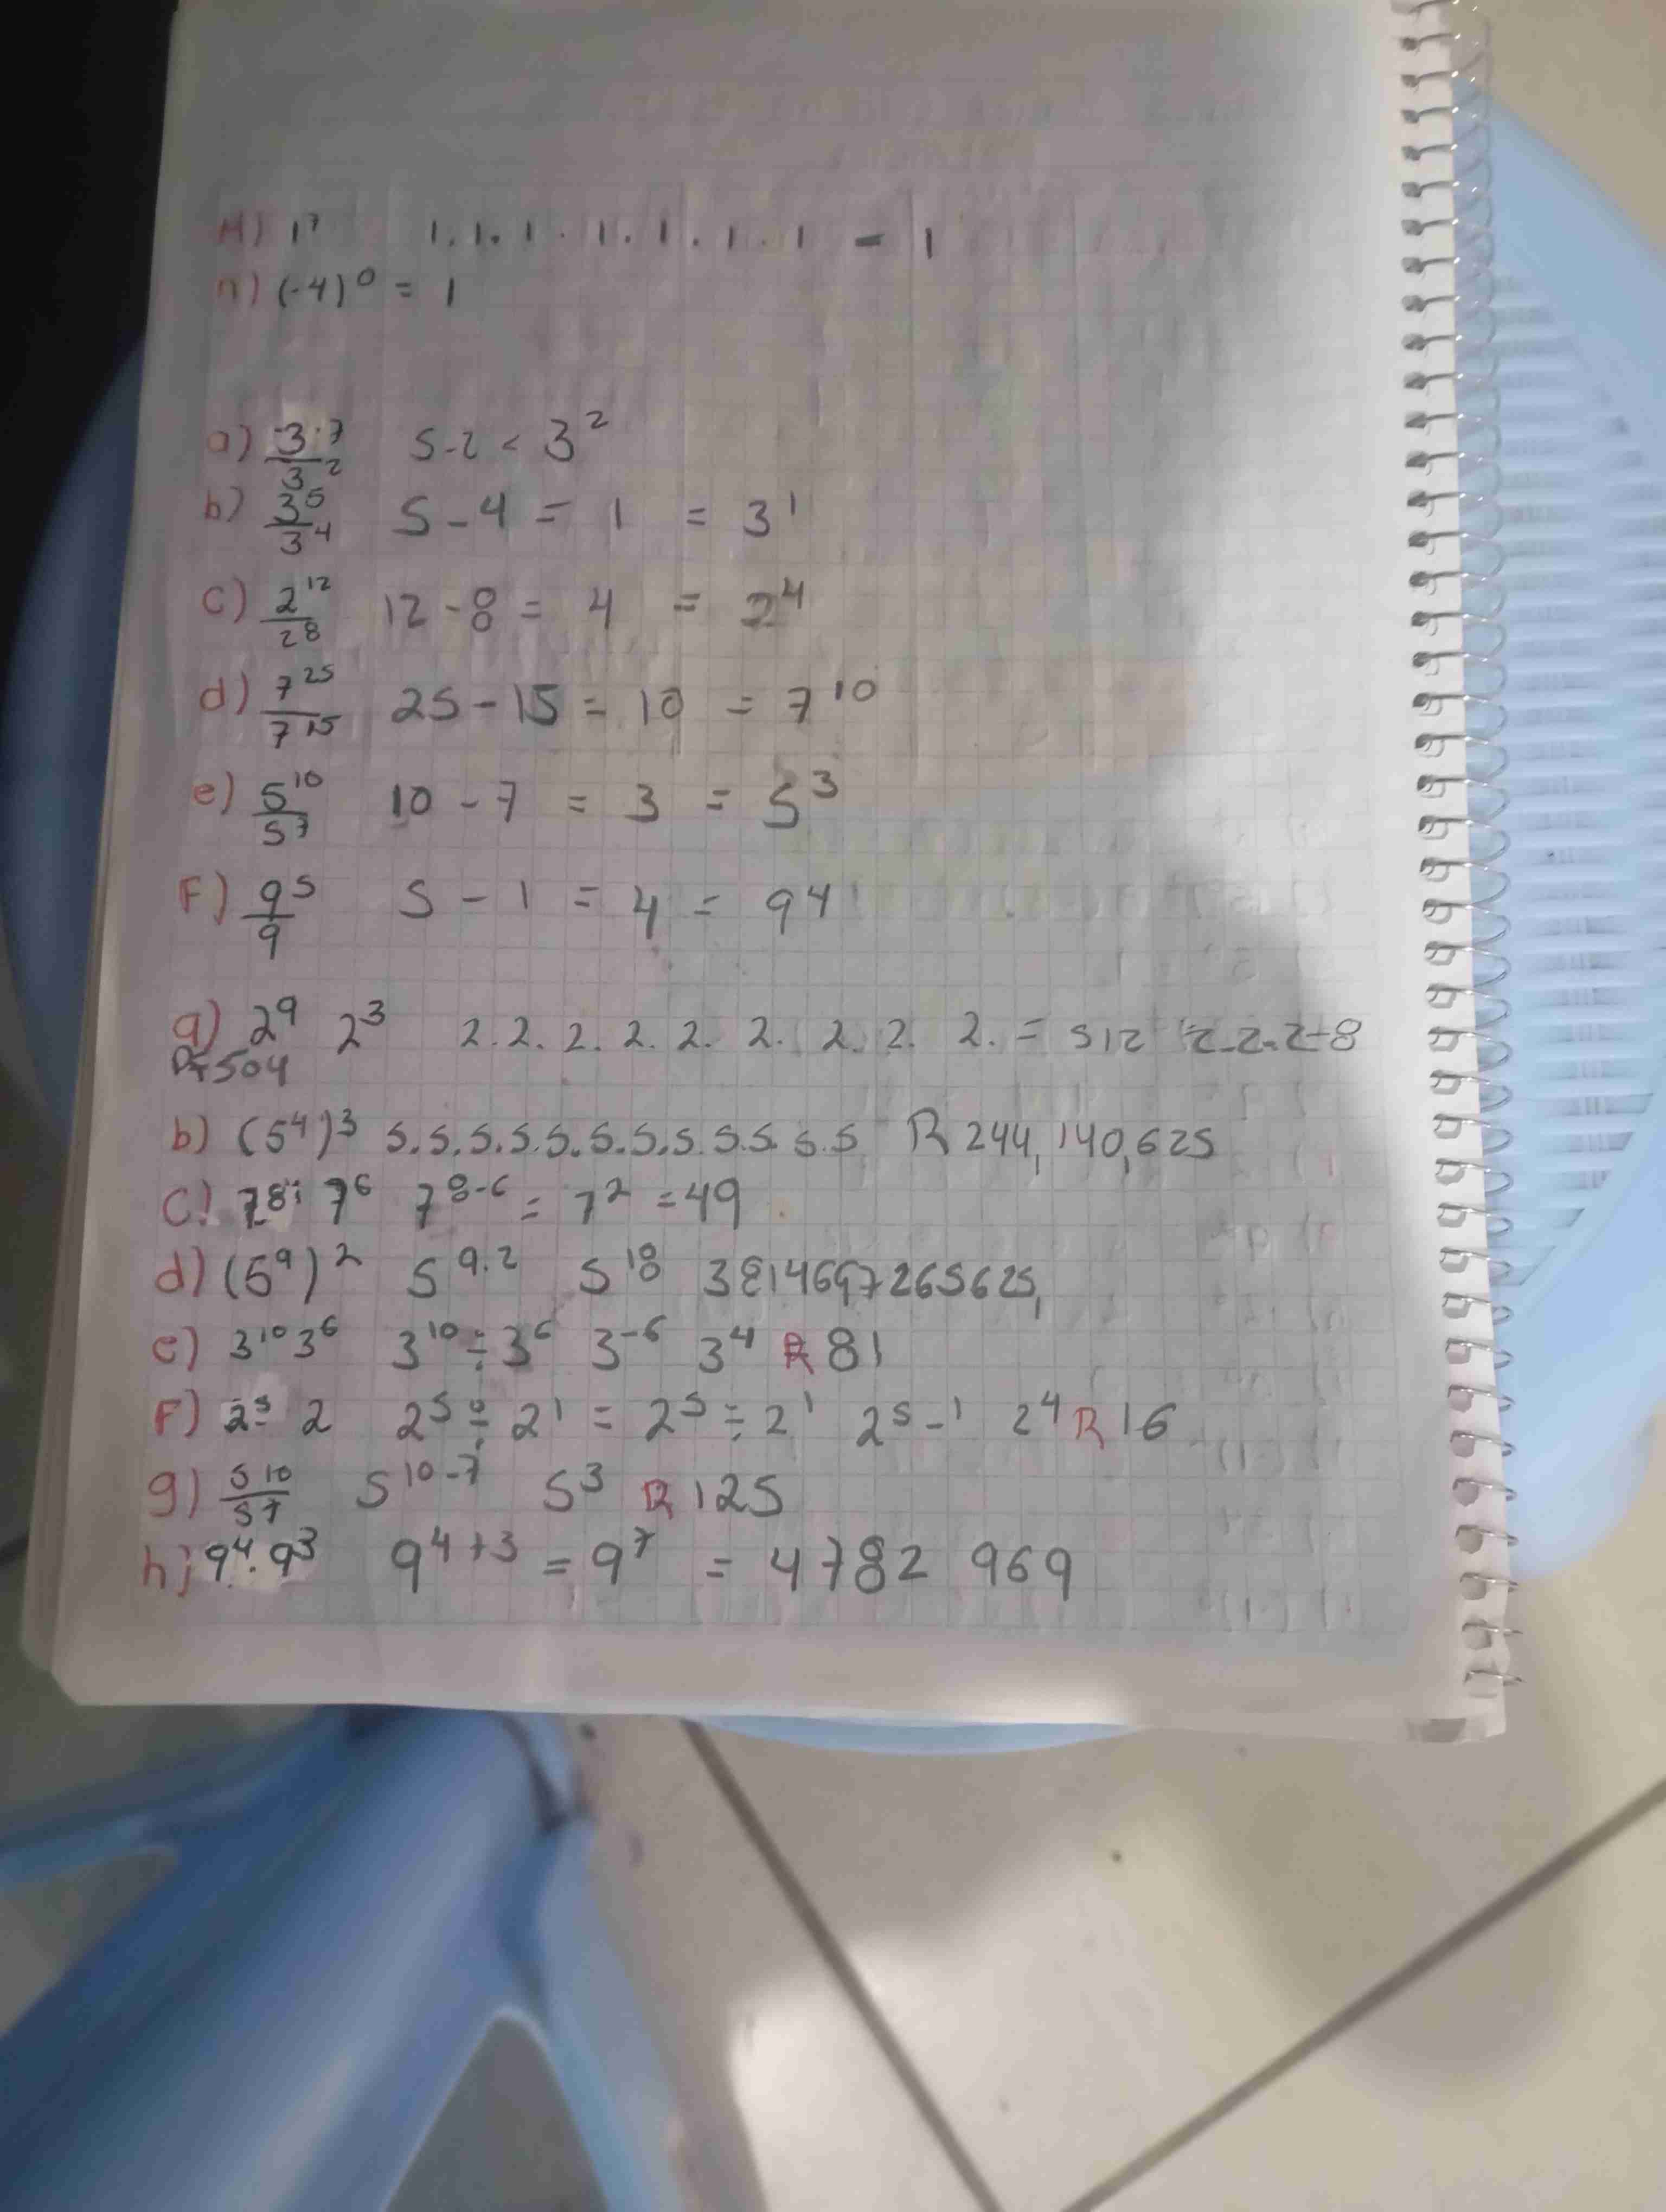 M) 1⁷ 1.1.1.1.1.1.1 = 1
n) (-4)⁰ = 1
a) 3⁷/3² 5-2 < 3²
b) 3⁵/3⁴ 5-4 = 1 = 3¹
c) 2¹²/2⁸ 12-8 = 4 = 2⁴
d) 7²⁵/7¹⁵ 25-15 = 10 = 7¹⁰
e) 5¹⁰/5⁷ 10-7 = 3 = 5³
F) 9⁵/9 5-1 = 4 = 9⁴
a) 2⁹ 2³ 2.2.2.2.2.2.2.2.2. = 512 2.2.2=8
R=504
b) (5⁴)³ 5.5.5.5.5.5.5.5.5.5.5.5 R 244,140,625
c) 7⁸÷7⁶ 7⁸⁻⁶ = 7² = 49
d) (5⁹)² 5⁹·² 5¹⁸ 3814697265625,
e) 3¹⁰ 3⁶ 3¹⁰÷3⁶ 3⁻⁶ 3⁴ R 81
F) 2⁵ 2 2⁵÷2¹ = 2⁵÷2¹ 2⁵⁻¹ 2⁴ R 16
g) 5¹⁰/5⁷ 5¹⁰⁻⁷ 5³ R 125
h) 9⁴.9³ 9⁴⁺³ = 9⁷ = 4782 969